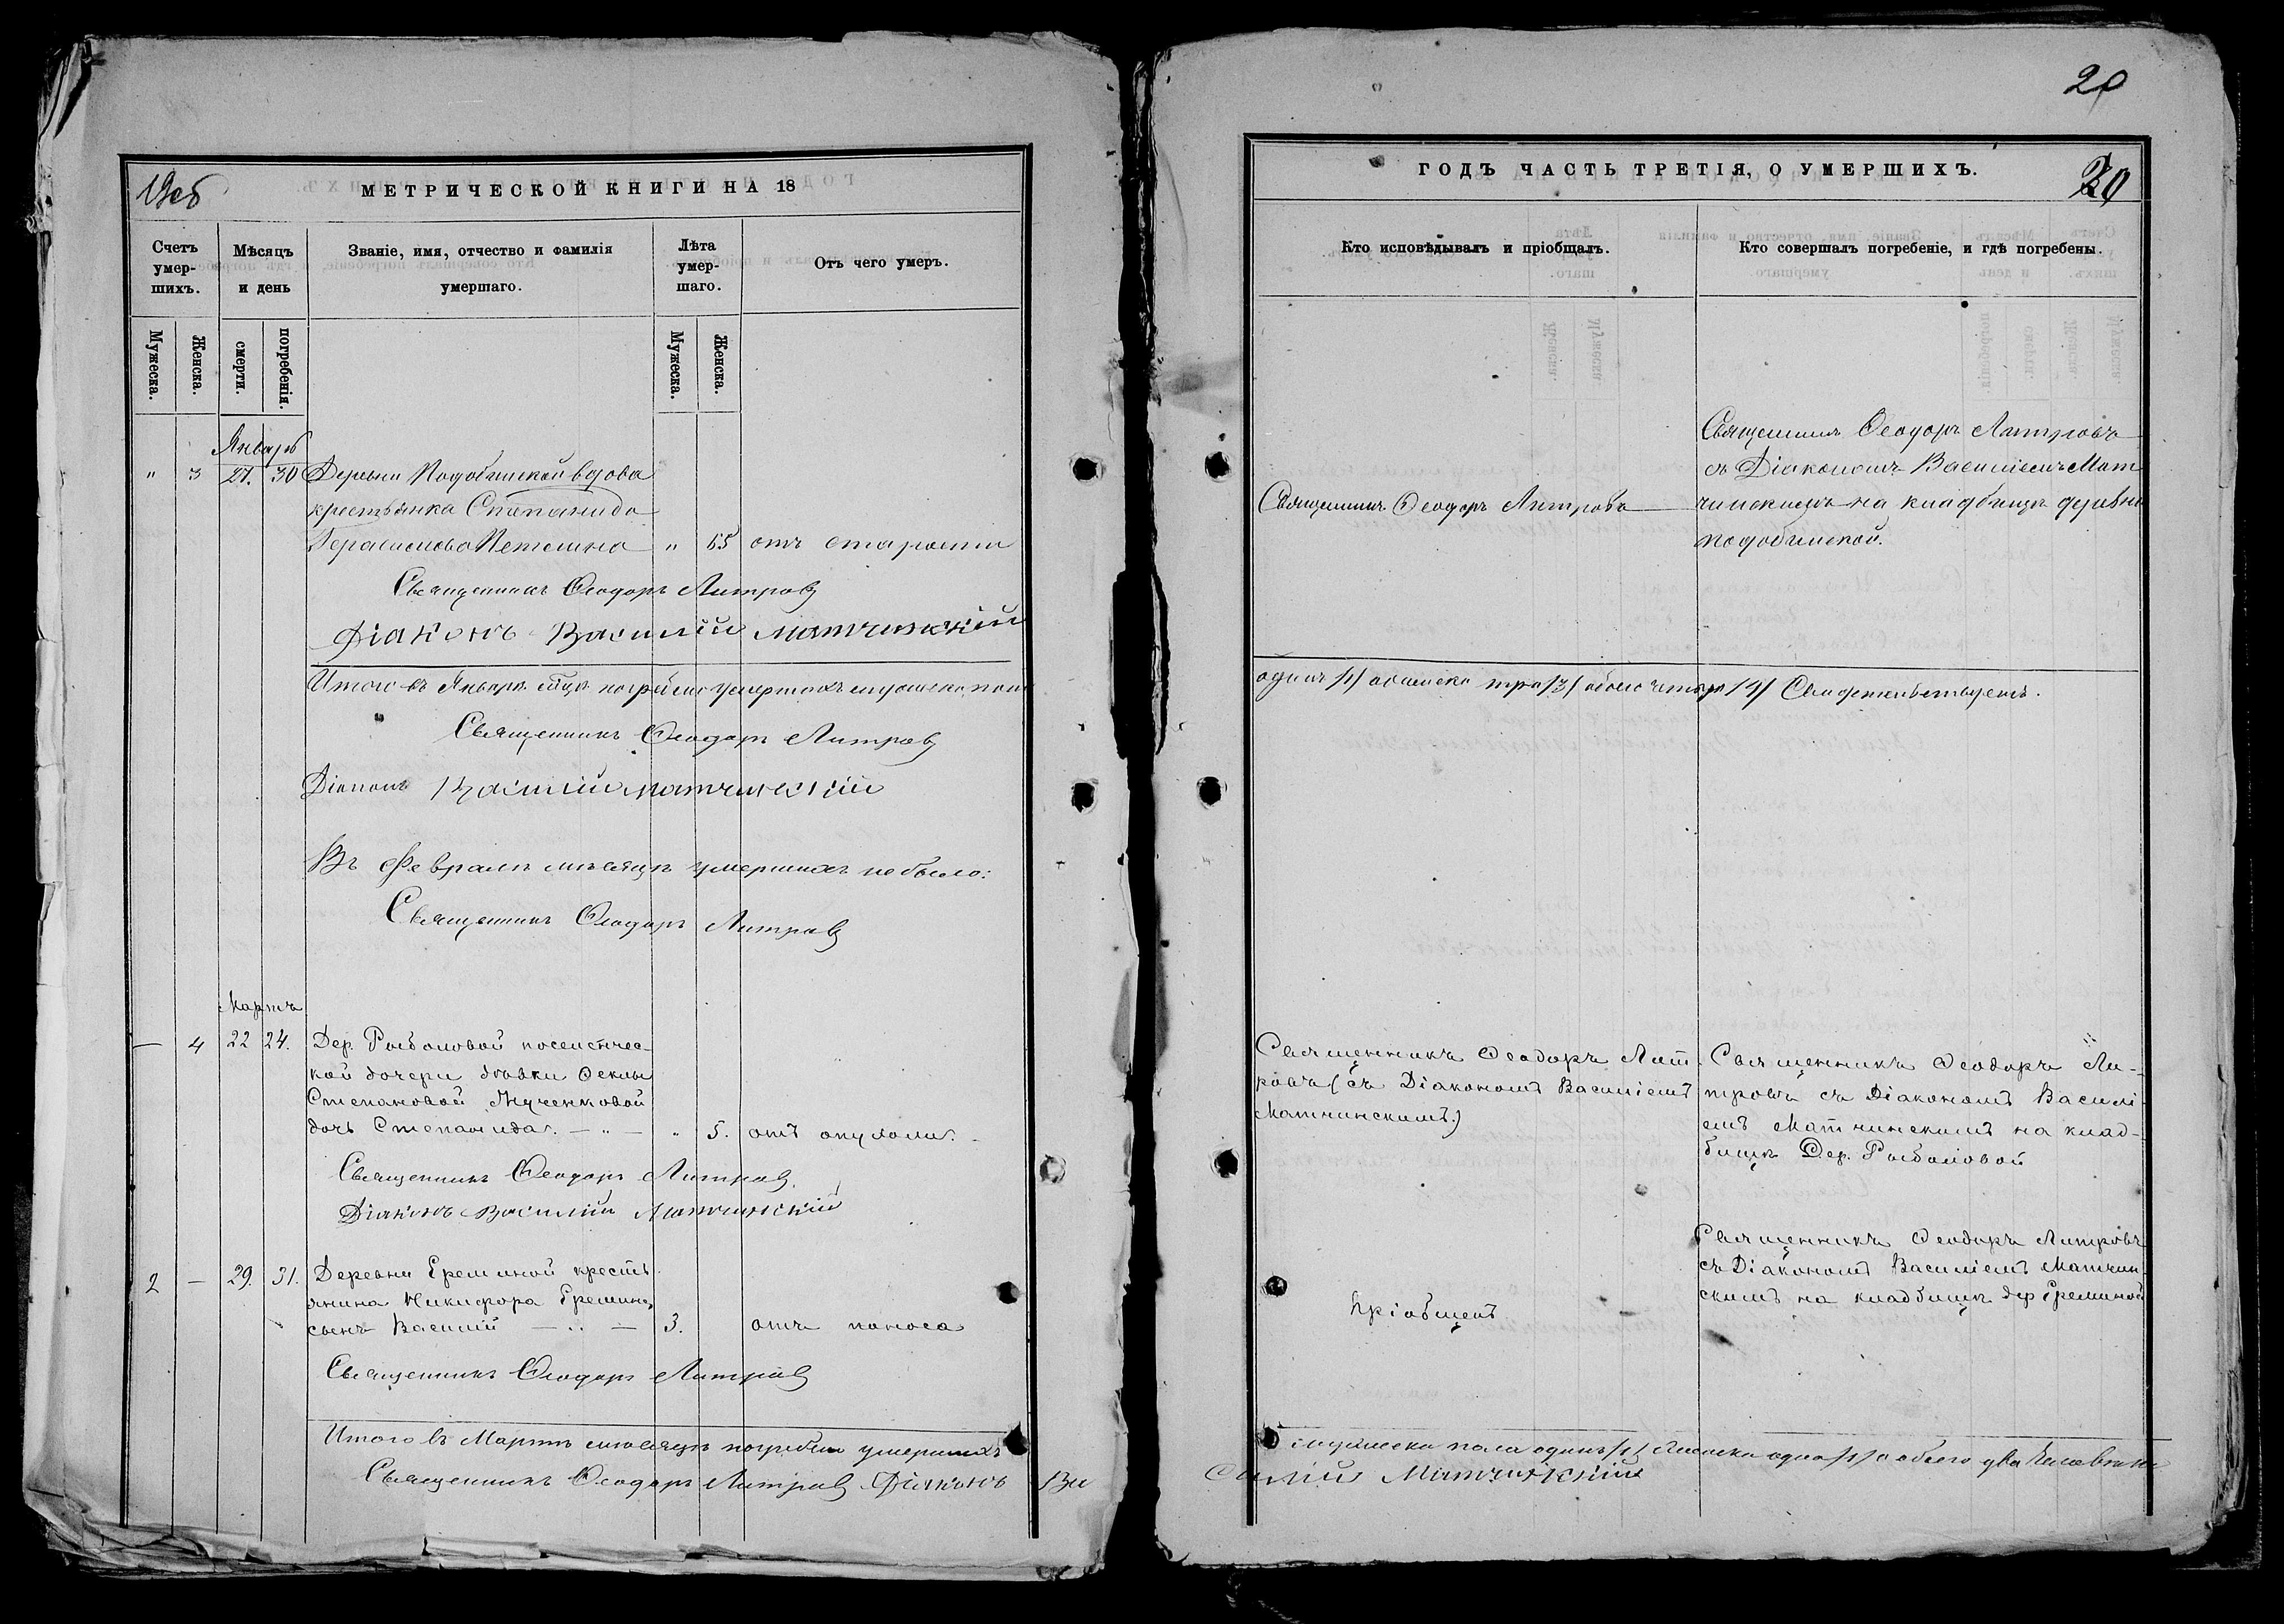 20
МЕТРИЧЕСКОЙ КНИГИ НА 18
Счетъ умер-шихъ.
Мѣсяцъ и день
Званіе, имя, отчество и фамилія умершаго.
Лѣта умер-шаго.
Отъ чего умеръ.
Мужеска.
Женска.
смерти.
погребенія.
Мужеска.
Женска.
Январь
" 3 27. 30 Деревни Подобинской вдова
крестьянка Степанида
Герасимова " 65 отъ старости
Священникъ Ѳеодоръ Литровъ
Діаконъ Василій Матчинскій
Итого въ Январѣ мцѣ погребено умершихъ мужеска пола
Священникъ Ѳеодоръ Литровъ
Діаконъ Василій Матчинскій
Въ Февралѣ мѣсяцѣ умершихъ не было:
Священникъ Ѳеодоръ Литровъ
Мартъ
— 4 22 24. Дер. Рыболовой поселенчес-
кой дочери дѣвки Ѳеклы
Степановой
дочь Степанида. — " — " 5. отъ опухоли.
Священникъ Ѳеодоръ Литровъ
Діаконъ Василій Матчинскій
2 — 29. 31. Деревни Ереминой кресть
янина Никифора Еремина
сынъ Василій — " — 3. отъ поноса
Священникъ Ѳеодоръ Литровъ
Итого въ Мартѣ мѣсяцѣ погребено умершихъ
Священникъ Ѳеодоръ Литровъ Діаконъ Ва
ГОДЪ ЧАСТЬ ТРЕТІЯ, О УМЕРШИХЪ.
Кто исповѣдывалъ и пріобщалъ.
Кто совершалъ погребеніе, и гдѣ погребены.
Священникъ Ѳеодоръ Литровъ
Священникъ Ѳеодоръ Литровъ
съ Діакономъ Василіемъ Мат
чинскимъ на кладбищѣ деревни
Подобинской.
одинъ /1/ а женска три /3/ обоего четыре /4/ Свидетельствуемъ.
Священникъ Ѳеодоръ Лит
ровъ (съ Діакономъ Василіемъ
Матчинскимъ.)
Священникъ Ѳеодоръ Ли-
тровъ съ Діакономъ Василі
емъ Матчинскимъ на клад-
бищѣ Дер. Рыболовой
Пріобщенъ
Священникъ Ѳеодоръ Литровъ
съ Діакономъ Василіемъ Матчин
скимъ на кладбищѣ дер Ереминой
мужеска пола одинъ /1/ женска одна /1/ а обоего два человѣка
силій Матчинскій